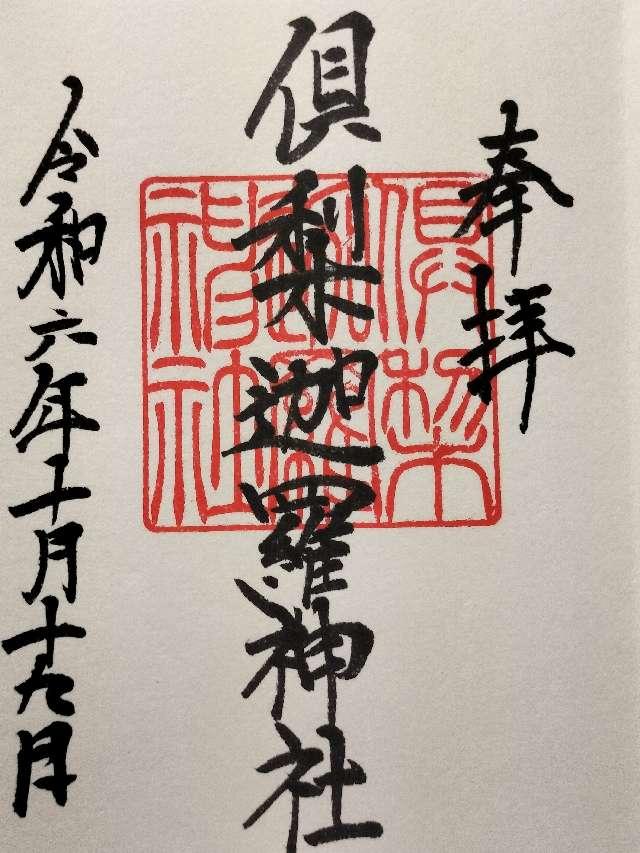 奉拝
倶梨迦羅神社
倶梨迦羅神社
令和六年十月十九日